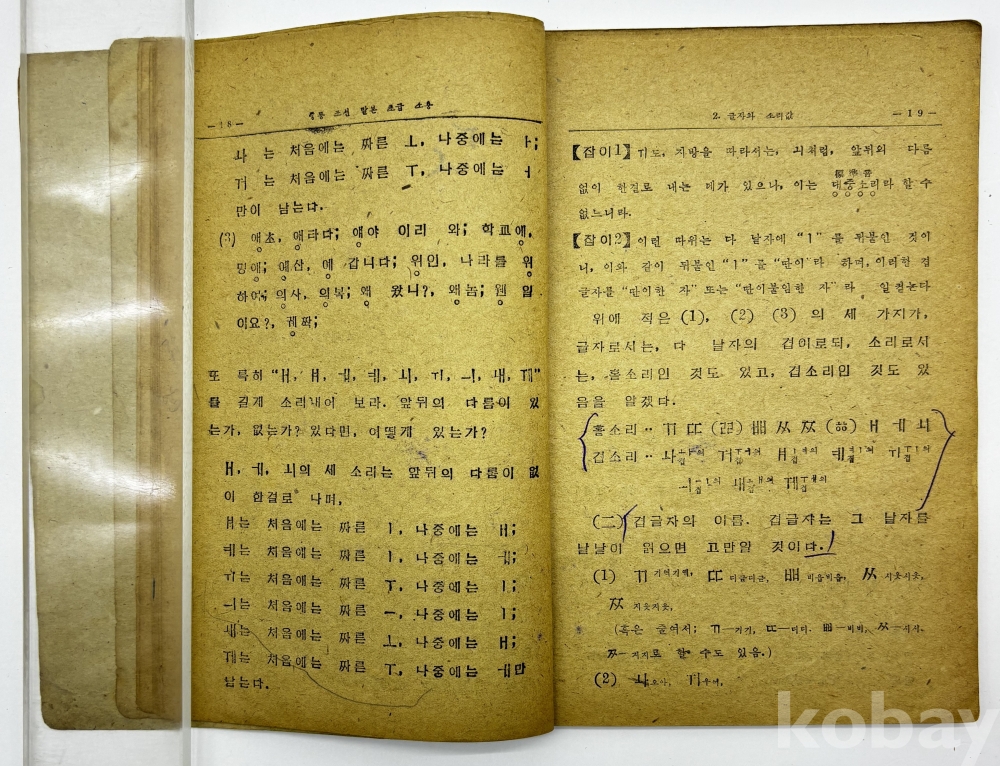 —18— 중등 조선 말본 초급 소용
ㅘ 는 처음에는 짜른 ㅗ, 나중에는 ㅏ;
ㅝ 는 처음에는 짜른 ㅜ, 나중에는 ㅓ
만이 남는다.
(3) 애초, 애라다; 얘야 이리 와; 학교에,
명예; 예산, 예 갑니다; 위인, 나라를 위
하여; 의사, 의복; 왜 왔니?, 왜놈; 웬 일
이요?, 궤짝;
또 특히 "ㅐ, ㅒ, ㅔ, ㅖ, ㅚ, ㅟ, ㅢ, ㅙ, ㅞ"
를 길게 소리내어 보라. 앞뒤의 다름이 있
는가, 없는가? 있다면, 어떻게 있는가?
ㅐ, ㅔ, ㅚ의 세 소리는 앞뒤의 다름이 없
이 한결로 나며,
ㅒ는 처음에는 짜른 ㅣ, 나중에는 ㅐ;
ㅖ는 처음에는 짜른 ㅣ, 나중에는 ㅔ;
ㅟ는 처음에는 짜른 ㅜ, 나중에는 ㅣ;
ㅢ는 처음에는 짜른 ㅡ, 나중에는 ㅣ;
ㅙ는 처음에는 짜른 ㅗ, 나중에는 ㅐ;
ㅞ는 처음에는 짜른 ㅜ, 나중에는 ㅔ만
남는다.
2. 글자와 소리값 —19—
【잡이1】 ㅟ도, 지방을 따라서는, ㅚ처럼, 앞뒤의 다름
없이 한결로 내는 데가 있으나, 이는 대중소리라 할 수
없느니라.
【잡이2】 이런 따위는 다 낱자에 "ㅣ" 를 뒤붙인 것이
니, 이와 같이 뒤붙인 "ㅣ" 를 "딴이"라 하며, 이러한 겹
글자를 "딴이한 자" 또는 "딴이붙임한 자" 라 일컫는다
위에 적은 (1), (2) (3) 의 세 가지가,
글자로서는, 다 낱자의 겹이로되, 소리로서
는, 홑소리인 것도 있고, 겹소리인 것도 있
음을 알겠다.
홑소리‥ㄲ ㄸ (ㄹㄹ) ㅃ ㅆ ㅉ (ㆅ) ㅐ ㅔ ㅚ
겹소리‥ㅘ ㅝ ㅒ ㅖ ㅟ
ㅢ ㅙ ㅞ
(二) 겹글자의 이름. 겹글자는 그 낱자를
낱낱이 읽으면 고만일 것이다.
(1) ㄲ기역기역, ㄸ디귿디귿, ㅃ비읍비읍, ㅆ시옷시옷,
ㅉ지읒지읒,
(혹은 줄여서; ㄲ—기기, ㄸ—디디. ㅃ—비비, ㅆ—시시.
ㅉ—지지로 할 수도 있음.)
(2) ㅘ오아, ㅝ우어,
kobay